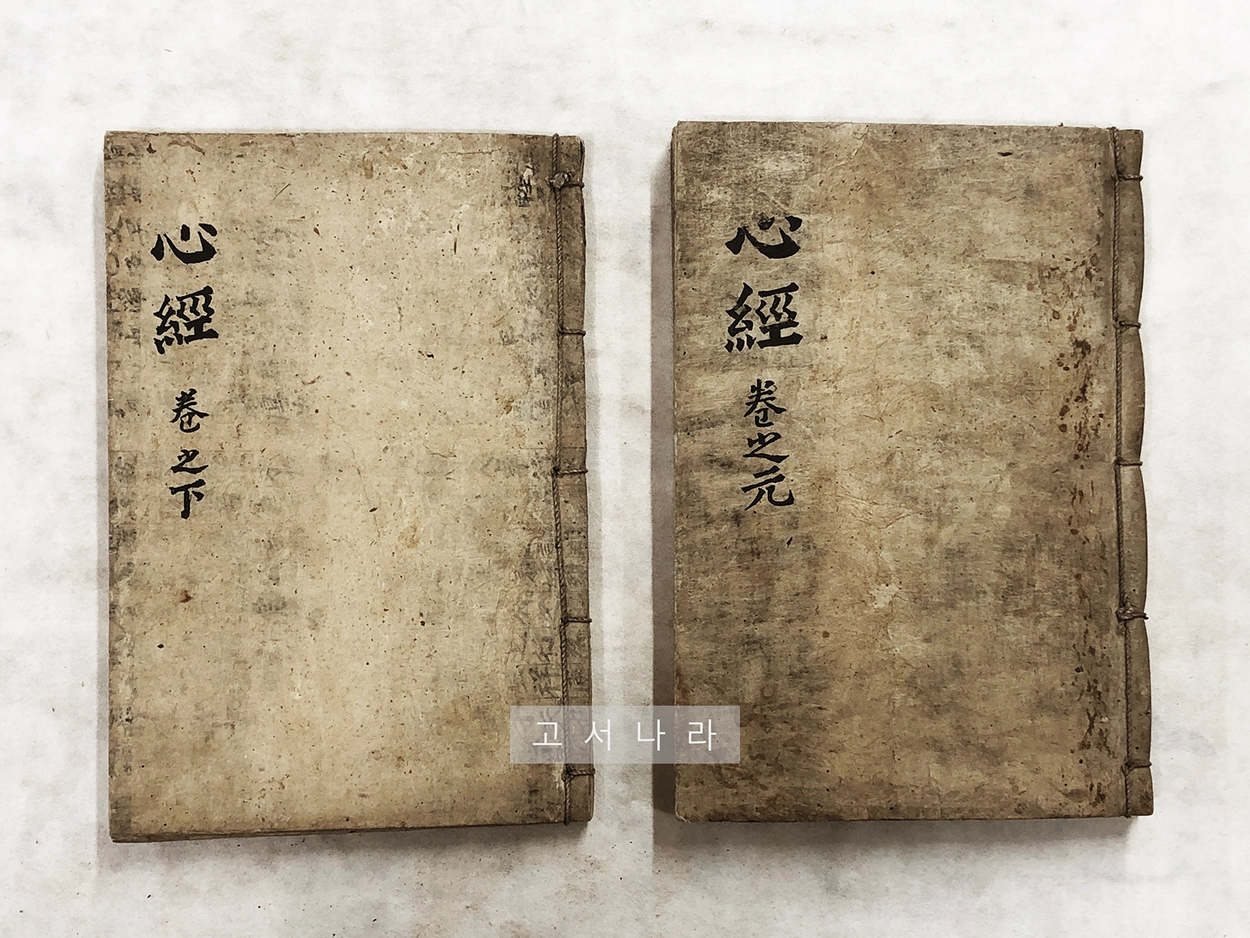 心經 卷之下
心經 卷之元
고서나라